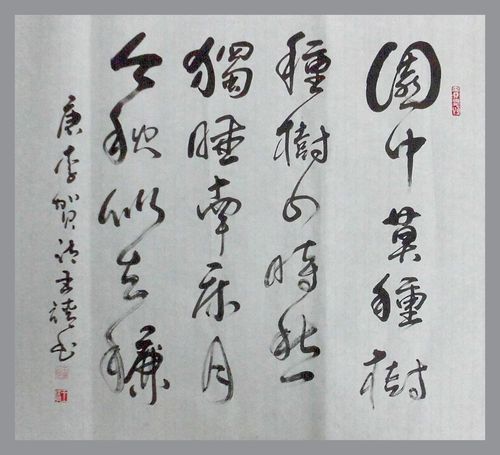 園中莫種樹
種樹四時愁
獨睡南床月
今秋似去秋
唐李賀詩 書